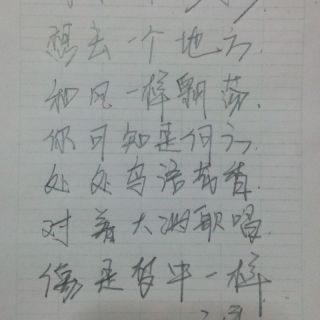 想去一个地方.
和风一样飘荡.
你可知是何方,
处处鸟语花香.
对着大 唱.
像是梦中一样.